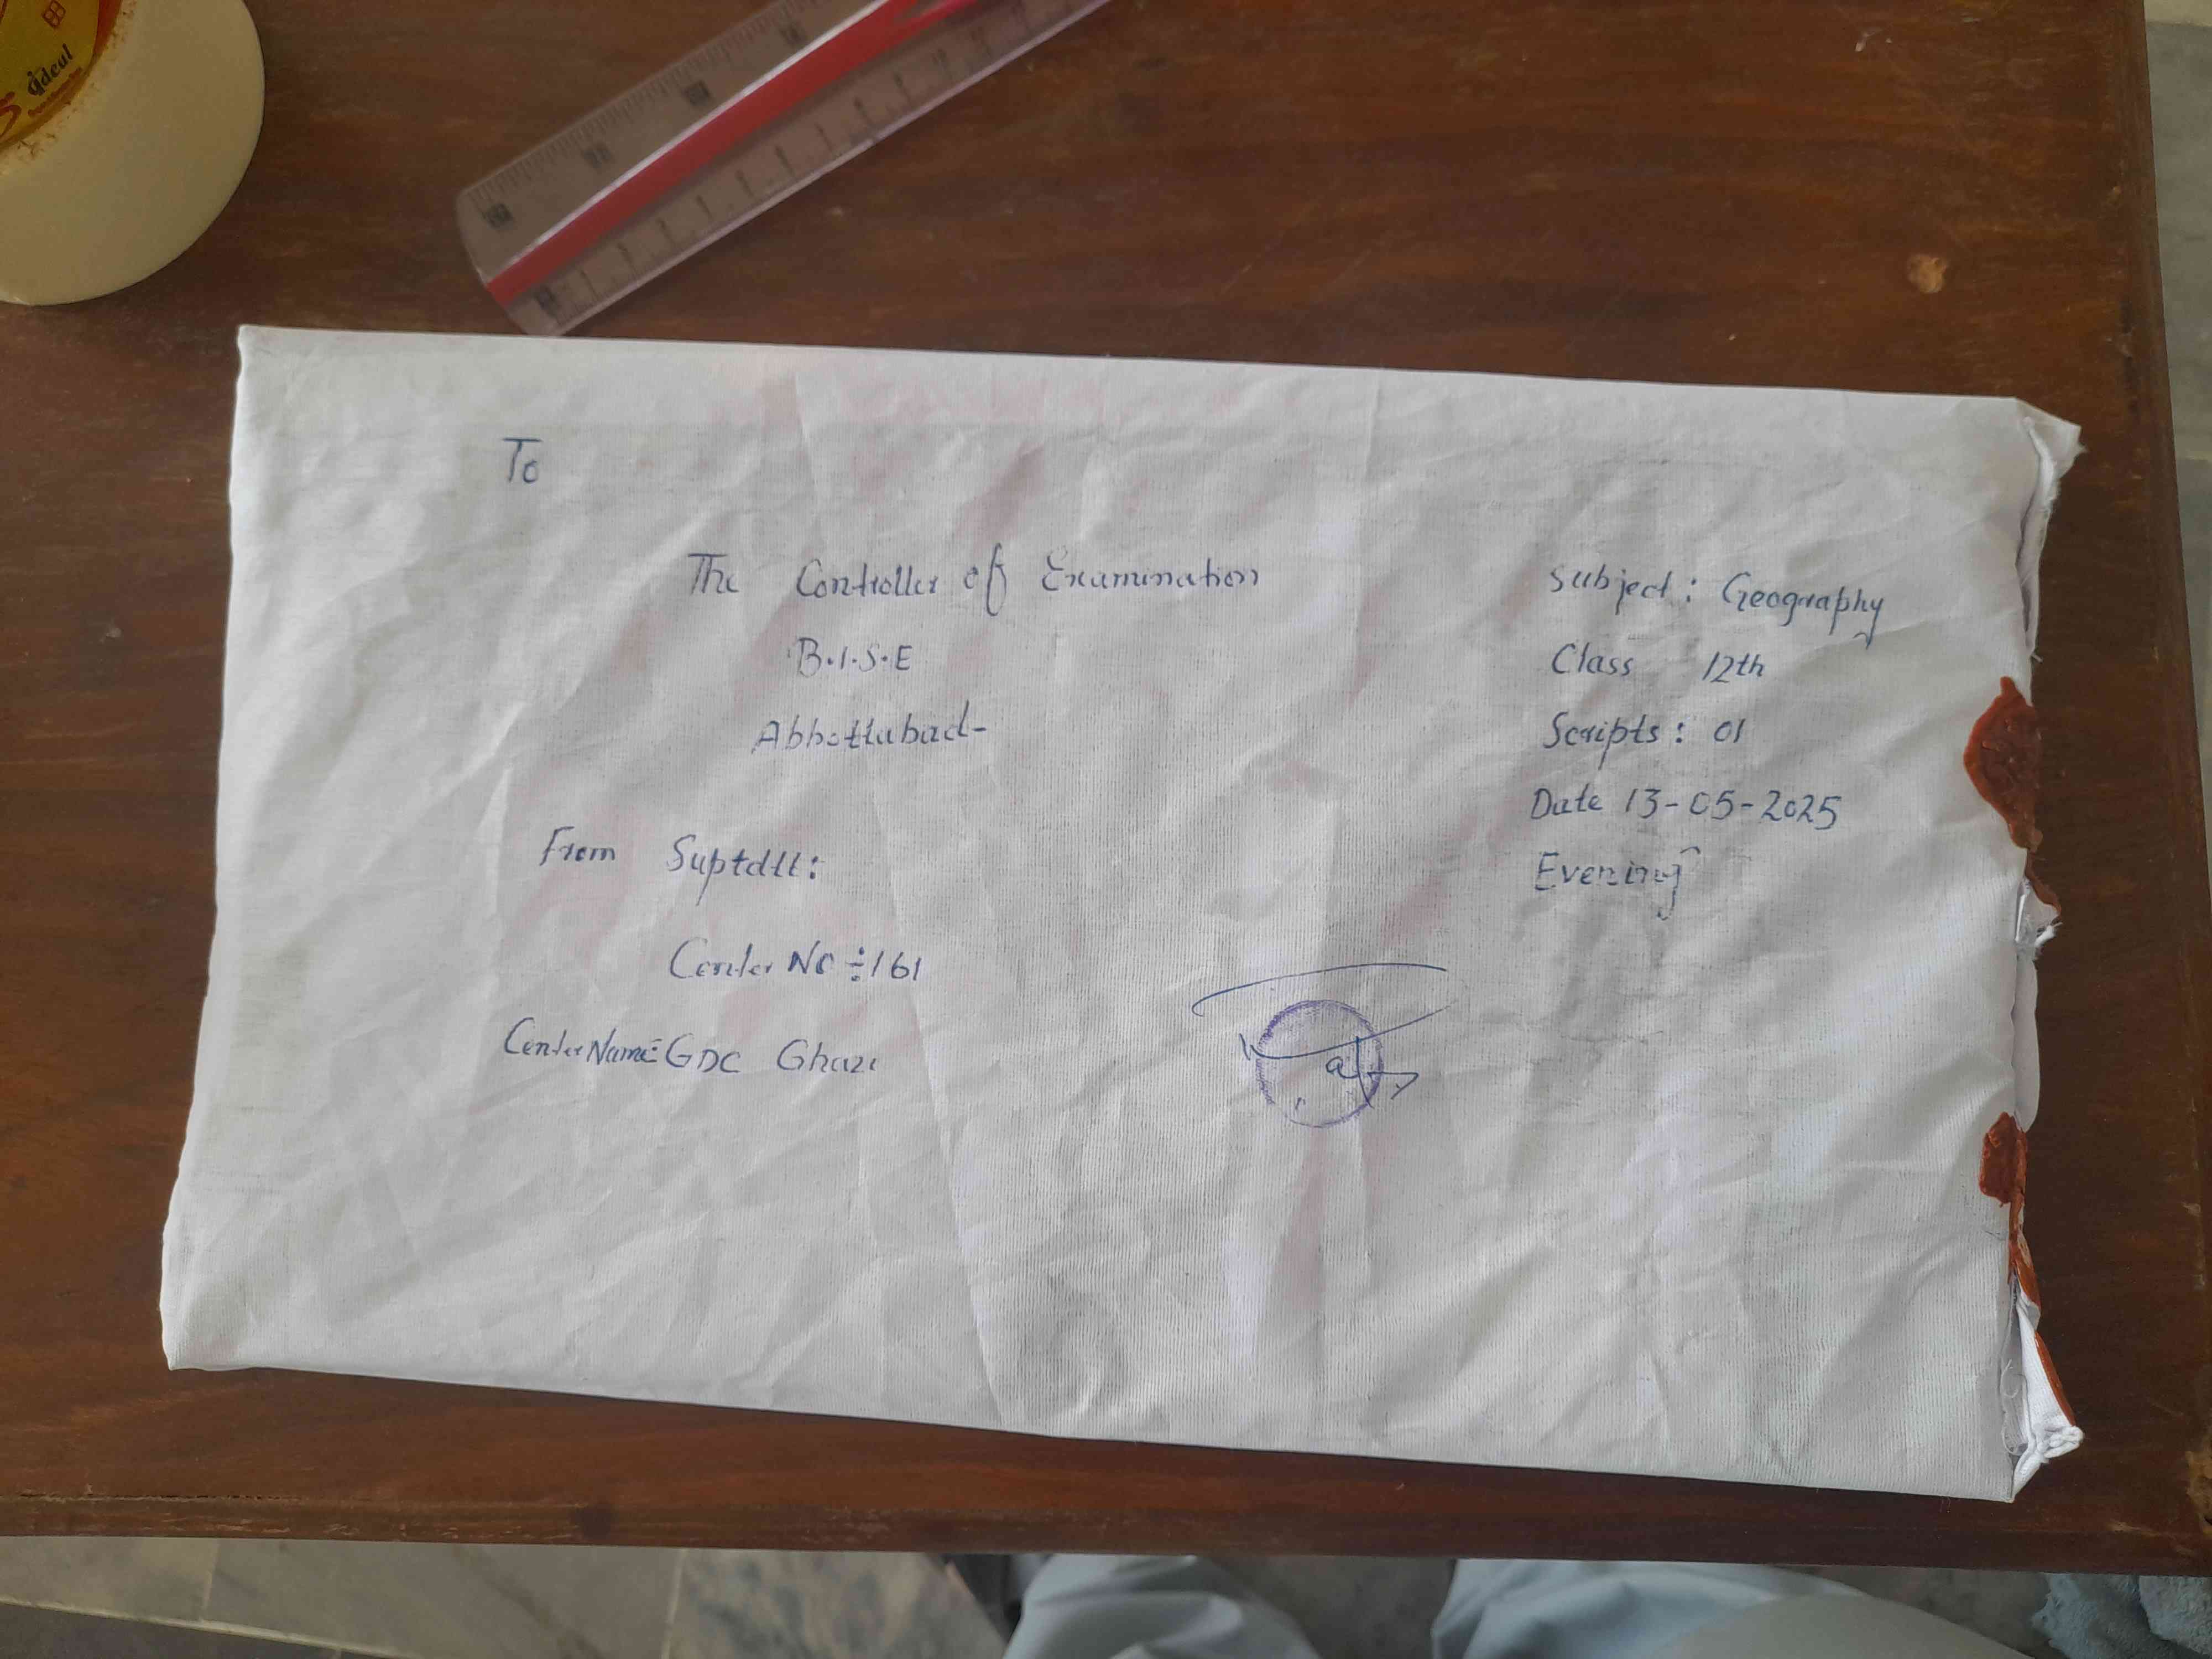 To
The Controller of Examination
B.I.S.E
Abbottabad-
From Suptdtt:
Center No ÷ 161
Center Name:- GDC Ghazi
Subject: Geography
Class 12th
Scripts: 01
Date 13-05-2025
Evening